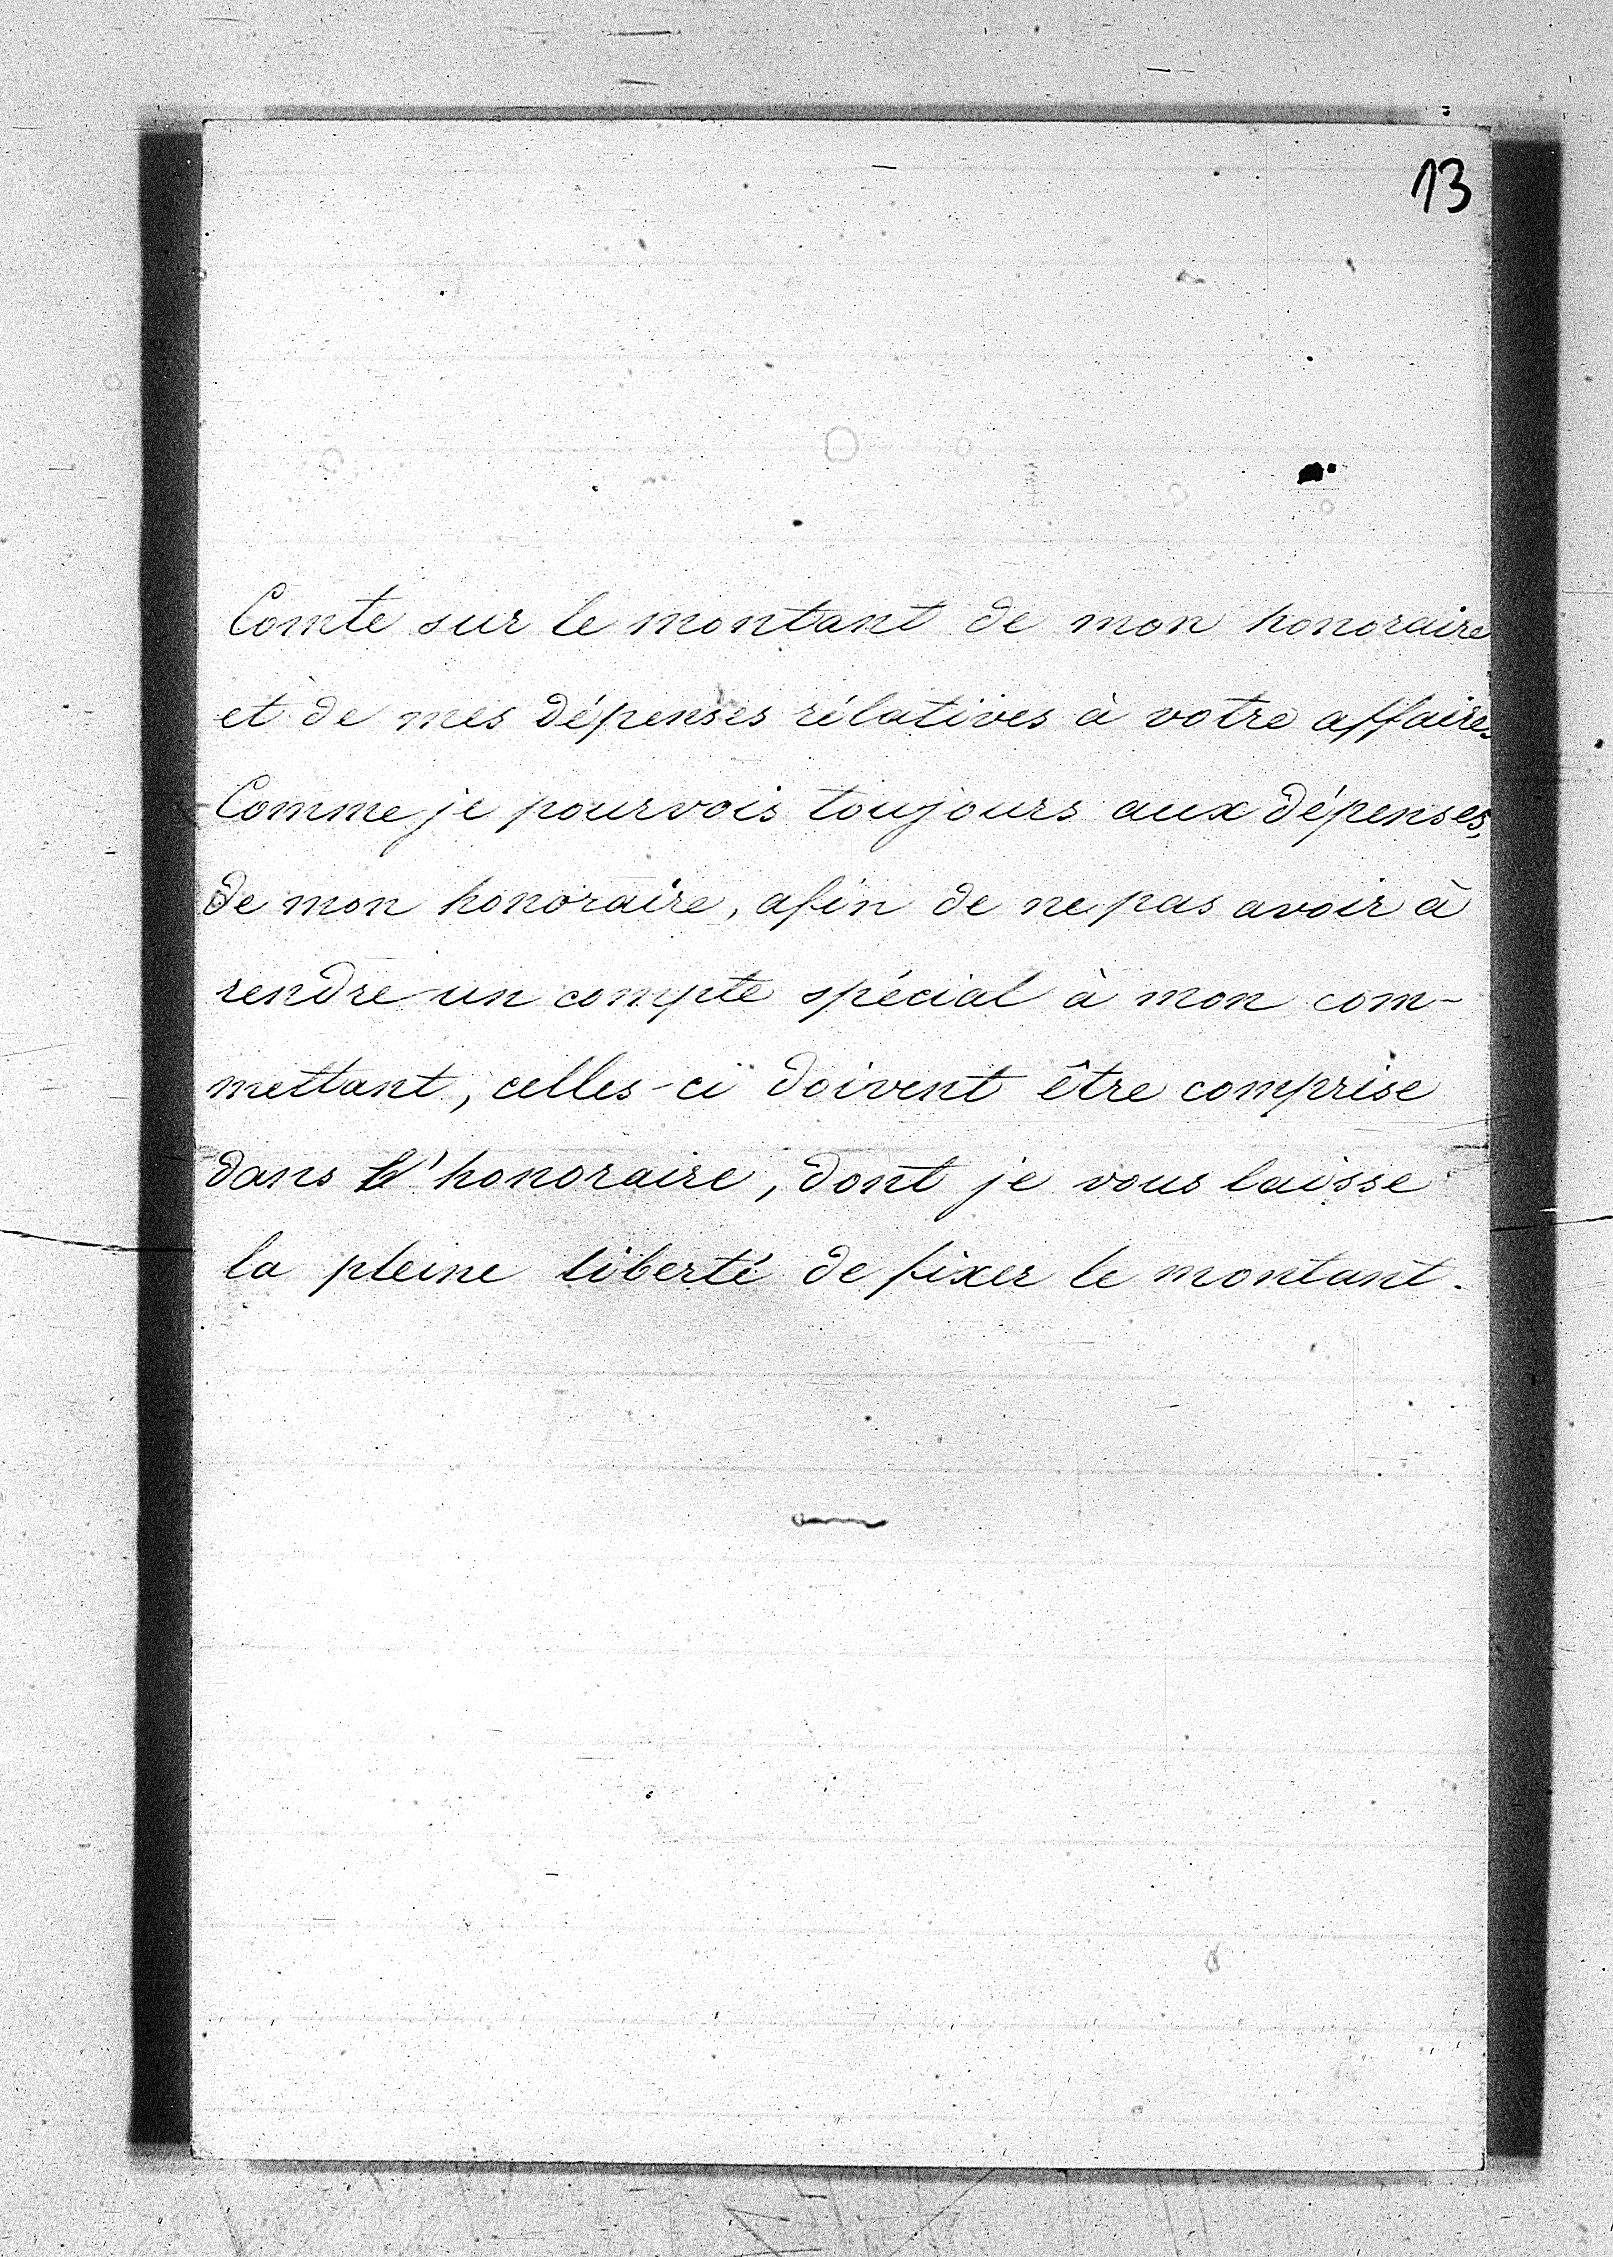 13
Comte sur le montant de mon honoraire
et de mes dépenses rélatives à votre affaire.
Comme je pourvois toujours aux dépenses,
de mon honoraire, afin de ne pas avoir à
rendre un compte spécial à mon com-
mettant, celles-ci doivent être comprise
dans l'honoraire, dont je vous laisse
la pleine liberté de fixer le montant.